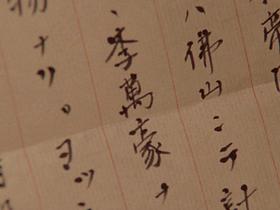 ハ佛山ニテ計
、李萬豪ナ
物ナリ。ヨツ